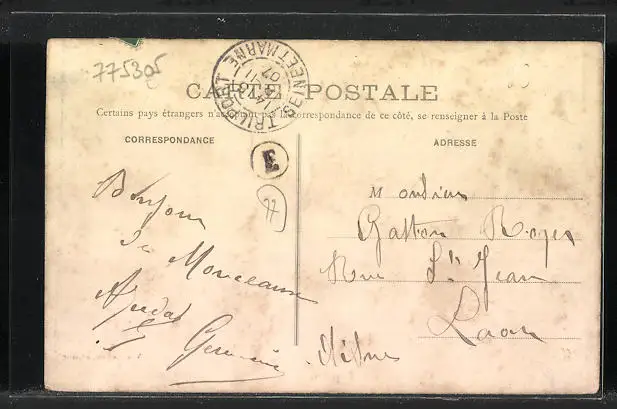 775305
TRILPORT
SEINE ET MARNE
14
11
07
CARTE POSTALE
Certains pays étrangers n'acceptant pas la correspondance de ce côté, se renseigner à la Poste
CORRESPONDANCE
ADRESSE
3
77
Bonjour
de Monceaux
Germaine
Monsieur
Gaston Roger
Rue St Jean
Laon
Aisne